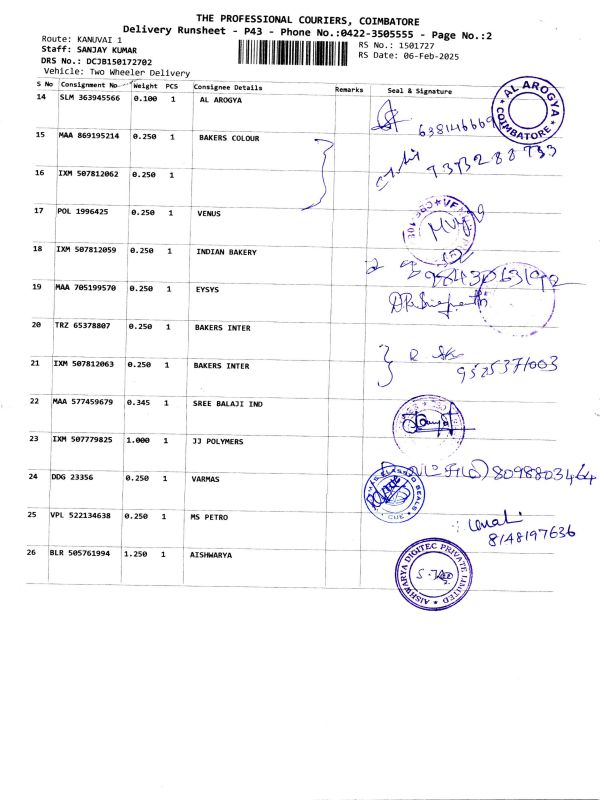 THE PROFESSIONAL COURIERS, COIMBATORE
Delivery Runsheet - P43 - Phone No.:0422-3505555 - Page No.:2
Route: KANUVAI 1
Staff: SANJAY KUMAR
RS No.: 1501727
DRS No.: DCJB150172702
RS Date: 06-Feb-2025
Vehicle: Two Wheeler Delivery
S No Consignment No Weight PCS Consignee Details Remarks Seal & Signature
14 SLM 363945566 0.100 1 AL AROGYA
AL AROGYA COIMBATORE
15 MAA 869195214 0.250 1 BAKERS COLOUR
16 IXM 507812062 0.250 1
17 POL 1996425 0.250 1 VENUS
18 IXM 507812059 0.250 1 INDIAN BAKERY
19 MAA 705199570 0.250 1 EYSYS
20 TRZ 65378807 0.250 1 BAKERS INTER
21 IXM 507812063 0.250 1 BAKERS INTER
9525371003
22 MAA 577459679 0.345 1 SREE BALAJI IND
23 IXM 507779825 1.000 1 JJ POLYMERS
8098803464
24 DDG 23356 0.250 1 VARMAS
25 VPL 522134638 0.250 1 MS PETRO
8148197636
26 BLR 505761994 1.250 1 AISHWARYA
AISHWARYA DIGITEC PRIVATE LIMITED